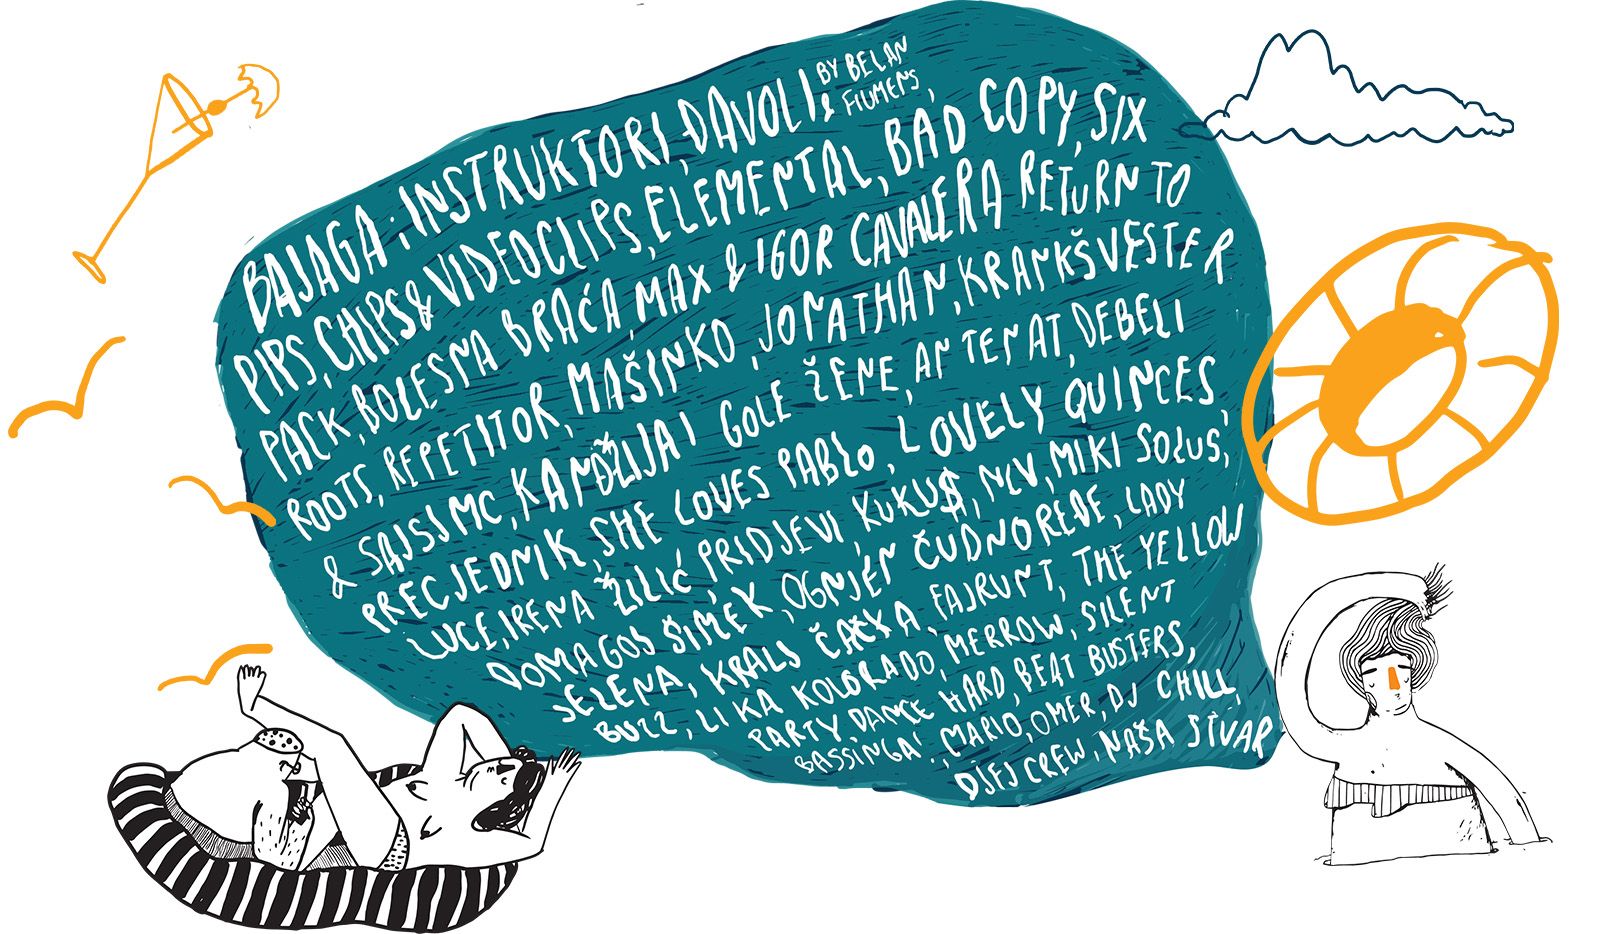 BAJAGA I INSTRUKTORI, ĐAVOLI BY BELAN & FIUMENS,
PIPS, CHIPS & VIDEOCLIPS, ELEMENTAL, BAD COPY, SIX
PACK, BOLESNA BRAĆA, MAX & IGOR CAVALERA RETURN TO
ROOTS, REPETITOR, MAŠINKO, JONATHAN, KRANKŠVESTER
& SAJSI MC, KANDŽIJA I GOLE ŽENE, ANTENAT, DEBELI
PRECJEDNIK, SHE LOVES PABLO, LOVELY QUINCES,
LUCE, IRENA ŽILIĆ, PRIDJEVI, KUKU$, NLV, MIKI SOLUS,
DOMAGOJ ŠIMEK, OGNJEN ČUDNOREĐE, LADY
JELENA, KRALJ ČAČKA, FAJRUNT, THE YELLOW
BUZZ, LIKA KOLORADO, MERROW, SILENT
PARTY, DANCE HARD, BEAT BUSTERS,
BASSINGA, MARIO, OMER, DJ CHILL,
DJEJ CREW, NAŠA STVAR